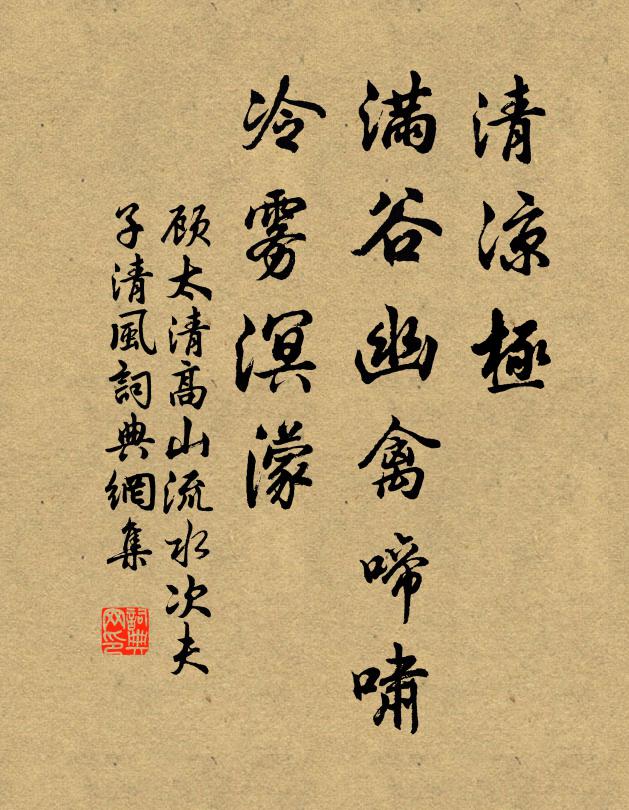 清凉極
满谷幽禽啼嘯
冷雾溟濛
顾太清高山流水次夫
子清風詞典網集
詞典
网印